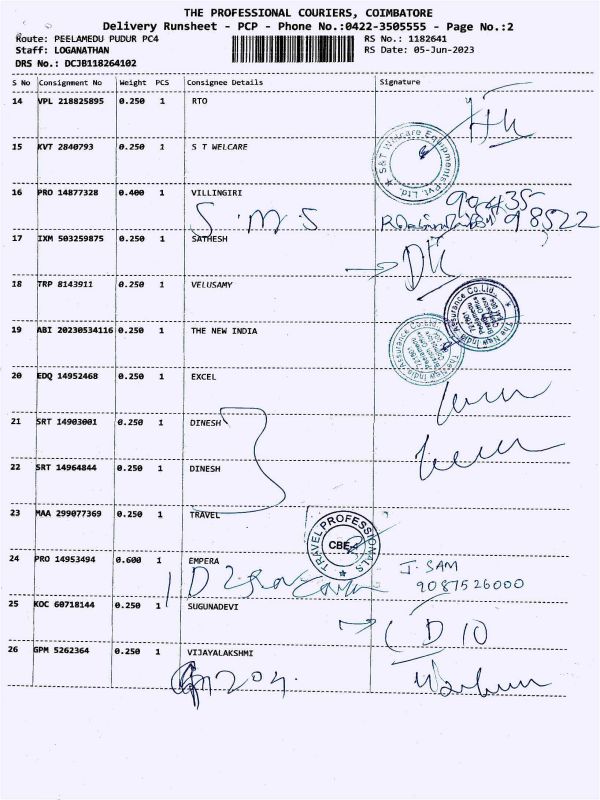 THE PROFESSIONAL COURIERS, COIMBATORE
Delivery Runsheet - PCP - Phone No.:0422-3505555 - Page No.:2
Route: PEELAMEDU PUDUR PC4 RS No.: 1182641
Staff: LOGANATHAN RS Date: 05-Jun-2023
DRS No.: DCJB118264102
S No Consignment No Weight PCS Consignee Details Signature
14 VPL 218825895 0.250 1 RTO
15 KVT 2840793 0.250 1 S T WELCARE
S&T Welcare Equipments Pvt. Ltd.
16 PRO 14877328 0.400 1 VILLINGIRI
S.M.S 99435
98522
17 IXM 503259875 0.250 1 SATHESH
18 TRP 8143911 0.250 1 VELUSAMY
The New India Assurance Co.Ltd.
19 ABI 20230534116 0.250 1 THE NEW INDIA
The New India Assurance Co.Ltd.
20 EDQ 14952468 0.250 1 EXCEL
21 SRT 14903001 0.250 1 DINESH
22 SRT 14964844 0.250 1 DINESH
23 MAA 299077369 0.250 1 TRAVEL
TRAVEL PROFESSIONALS
CBE
24 PRO 14953494 0.600 1 EMPERA
J. SAM
9087526000
25 KOC 60718144 0.250 1 SUGUNADEVI
26 GPM 5262364 0.250 1 VIJAYALAKSHMI